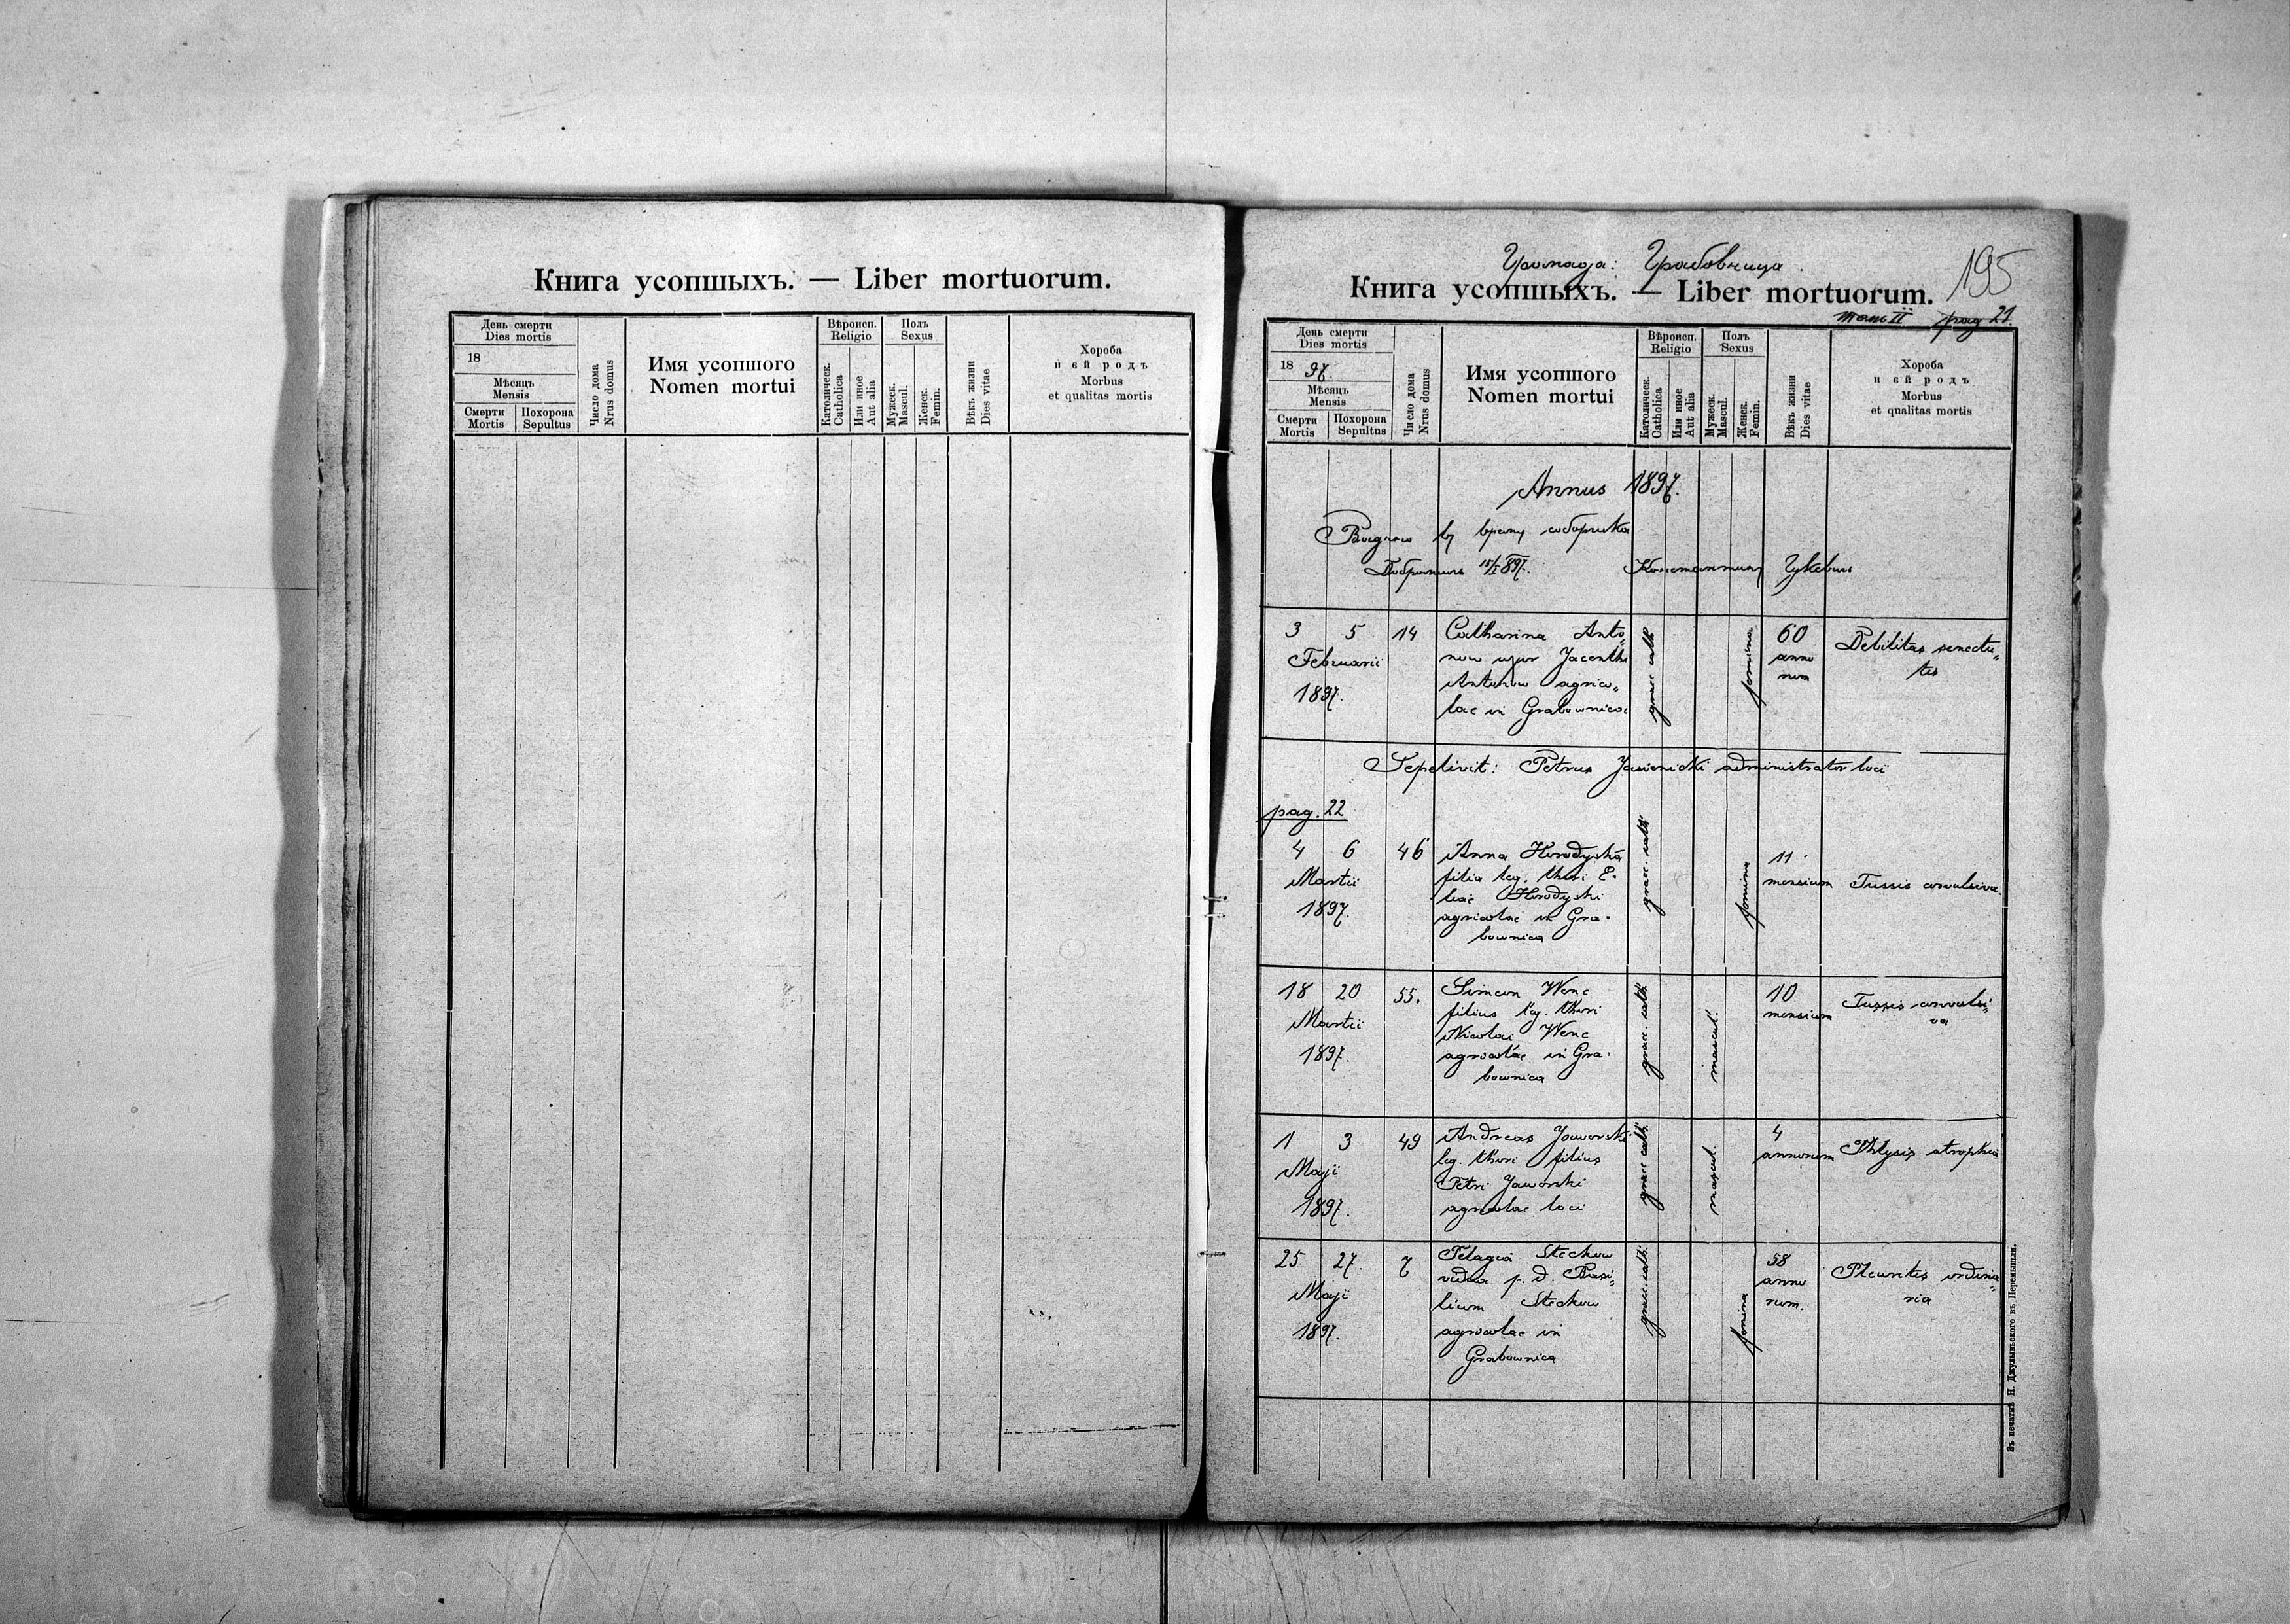 Книга усопшыхъ. — Liber mortuorum.
День смерти
Dies mortis
18
Мѣсяць
Mensis
Смерти
Mortis
Похорона
Sepultus
Число дома
Nrus domus
Имя усопшого
Nomen mortui
Вѣроисп.
Religio
Католическ.
Catholica
Или иное
Aut alia
Полъ
Sexus
Мужеск.
Mascul.
Женск.
Femin.
Вѣкъ жизни
Dies vitae
Хороба
и ей родъ
Morbus
et qualitas mortis
Громада: Грабовница.
195
Книга усопшыхъ. — Liber mortuorum.
том II pag 21.
День смерти
Dies mortis
18 97.
Мѣсяць
Mensis
Смерти
Mortis
Похорона
Sepultus
Число дома
Nrus domus
Имя усопшого
Nomen mortui
Вѣроисп.
Religio
Католическ.
Catholica
Или иное
Aut alia
Полъ
Sexus
Мужеск.
Mascul.
Женск.
Femin.
Вѣкъ жизни
Dies vitae
Хороба
и ей родъ
Morbus
et qualitas mortis
Annus 1897.
соборчика
Добромиль 15/I 897. Константин
3 5 14
Februarii
1897.
Catharina Anto„
now uxor Jacenthi
Antonow agrico„
lae in Grabownica
graec cath
femina
60
anno
rum
Debilitas senectu„
tis
Sepelivit: Petrus Jasienicki administrator loci
pag. 22
4 6 46
Martii
1897.
Anna Horodyska
filia leg. thori E-
liae Horodyski
agricolae in Gra-
bownica
graec. cath
femina
11
mensium
Tussis convulsiva.
18 20 55.
Martii
1897.
Simeon Wenc
filius leg. thori
Nicolai Wenc
agricolae in Gra-
bownica
graec. cath.
mascul.
10
mensium
Tussis convulsi„
va
1 3 49
Maji
1897.
Andreas Jaworski
leg. thori filius
Petri Jaworski
agricolae loci
graec cath.
mascul.
4
annorum
Phtysis atrophia
25 27. 7
Maji
1897.
Pelagia Steckow
vidua p. d. Basi„
lium Steckow
agricolae in
Grabownica
graec. cath.
femina
58
anno
rum.
Pleurites ordina„
ria
Зъ печатнѣ Н. Джулыньского въ Перемышли.